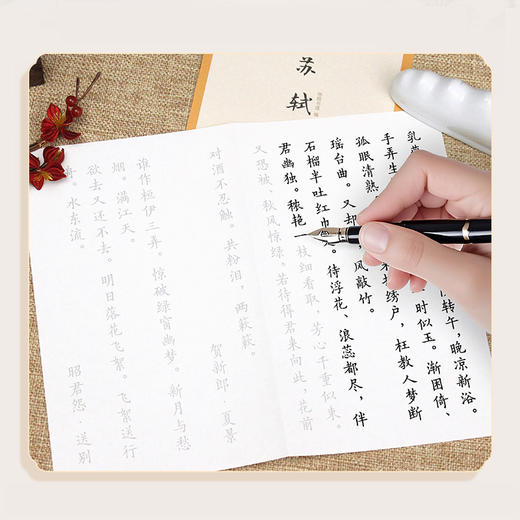 苏轼
乳燕
转午，晚凉新浴。
手弄生
时似玉。渐困倚、
孤眠清熟
来推绣户，枉教人梦断
瑶台曲。又却
风敲竹。
石榴半吐红巾
。待浮花、浪蕊都尽，伴
君幽独。秾艳
枝细看取，芳心千重似束。
又恐被、秋风惊绿。若待得君来向此，花前
对酒不忍触。共粉泪，两簌簌。
贺新郎·夏景
谁作桓伊三弄。惊破绿窗幽梦。新月与愁
烟。满江天。
欲去又还不去。明日落花飞絮。飞絮送行
舟。水东流。
昭君怨·送别